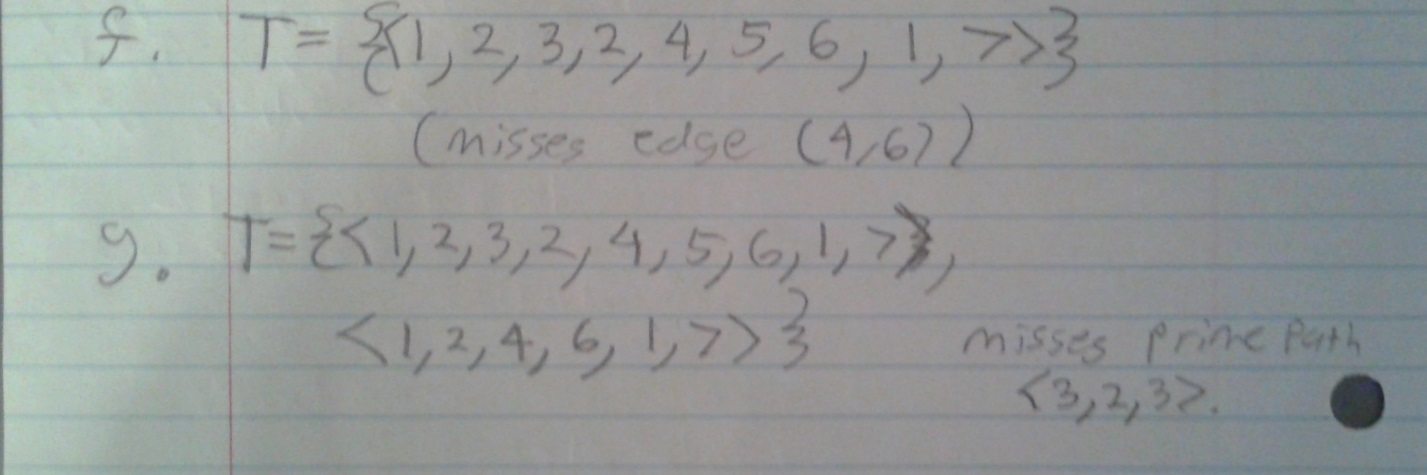 f. T= {<1, 2, 3, 2, 4, 5, 6, 1, 7>}
(misses edge (4,6))
g. T={<1, 2, 3, 2, 4, 5, 6, 1, 7>,
<1, 2, 4, 6, 1, 7>}
misses prime path
<3,2,3>.